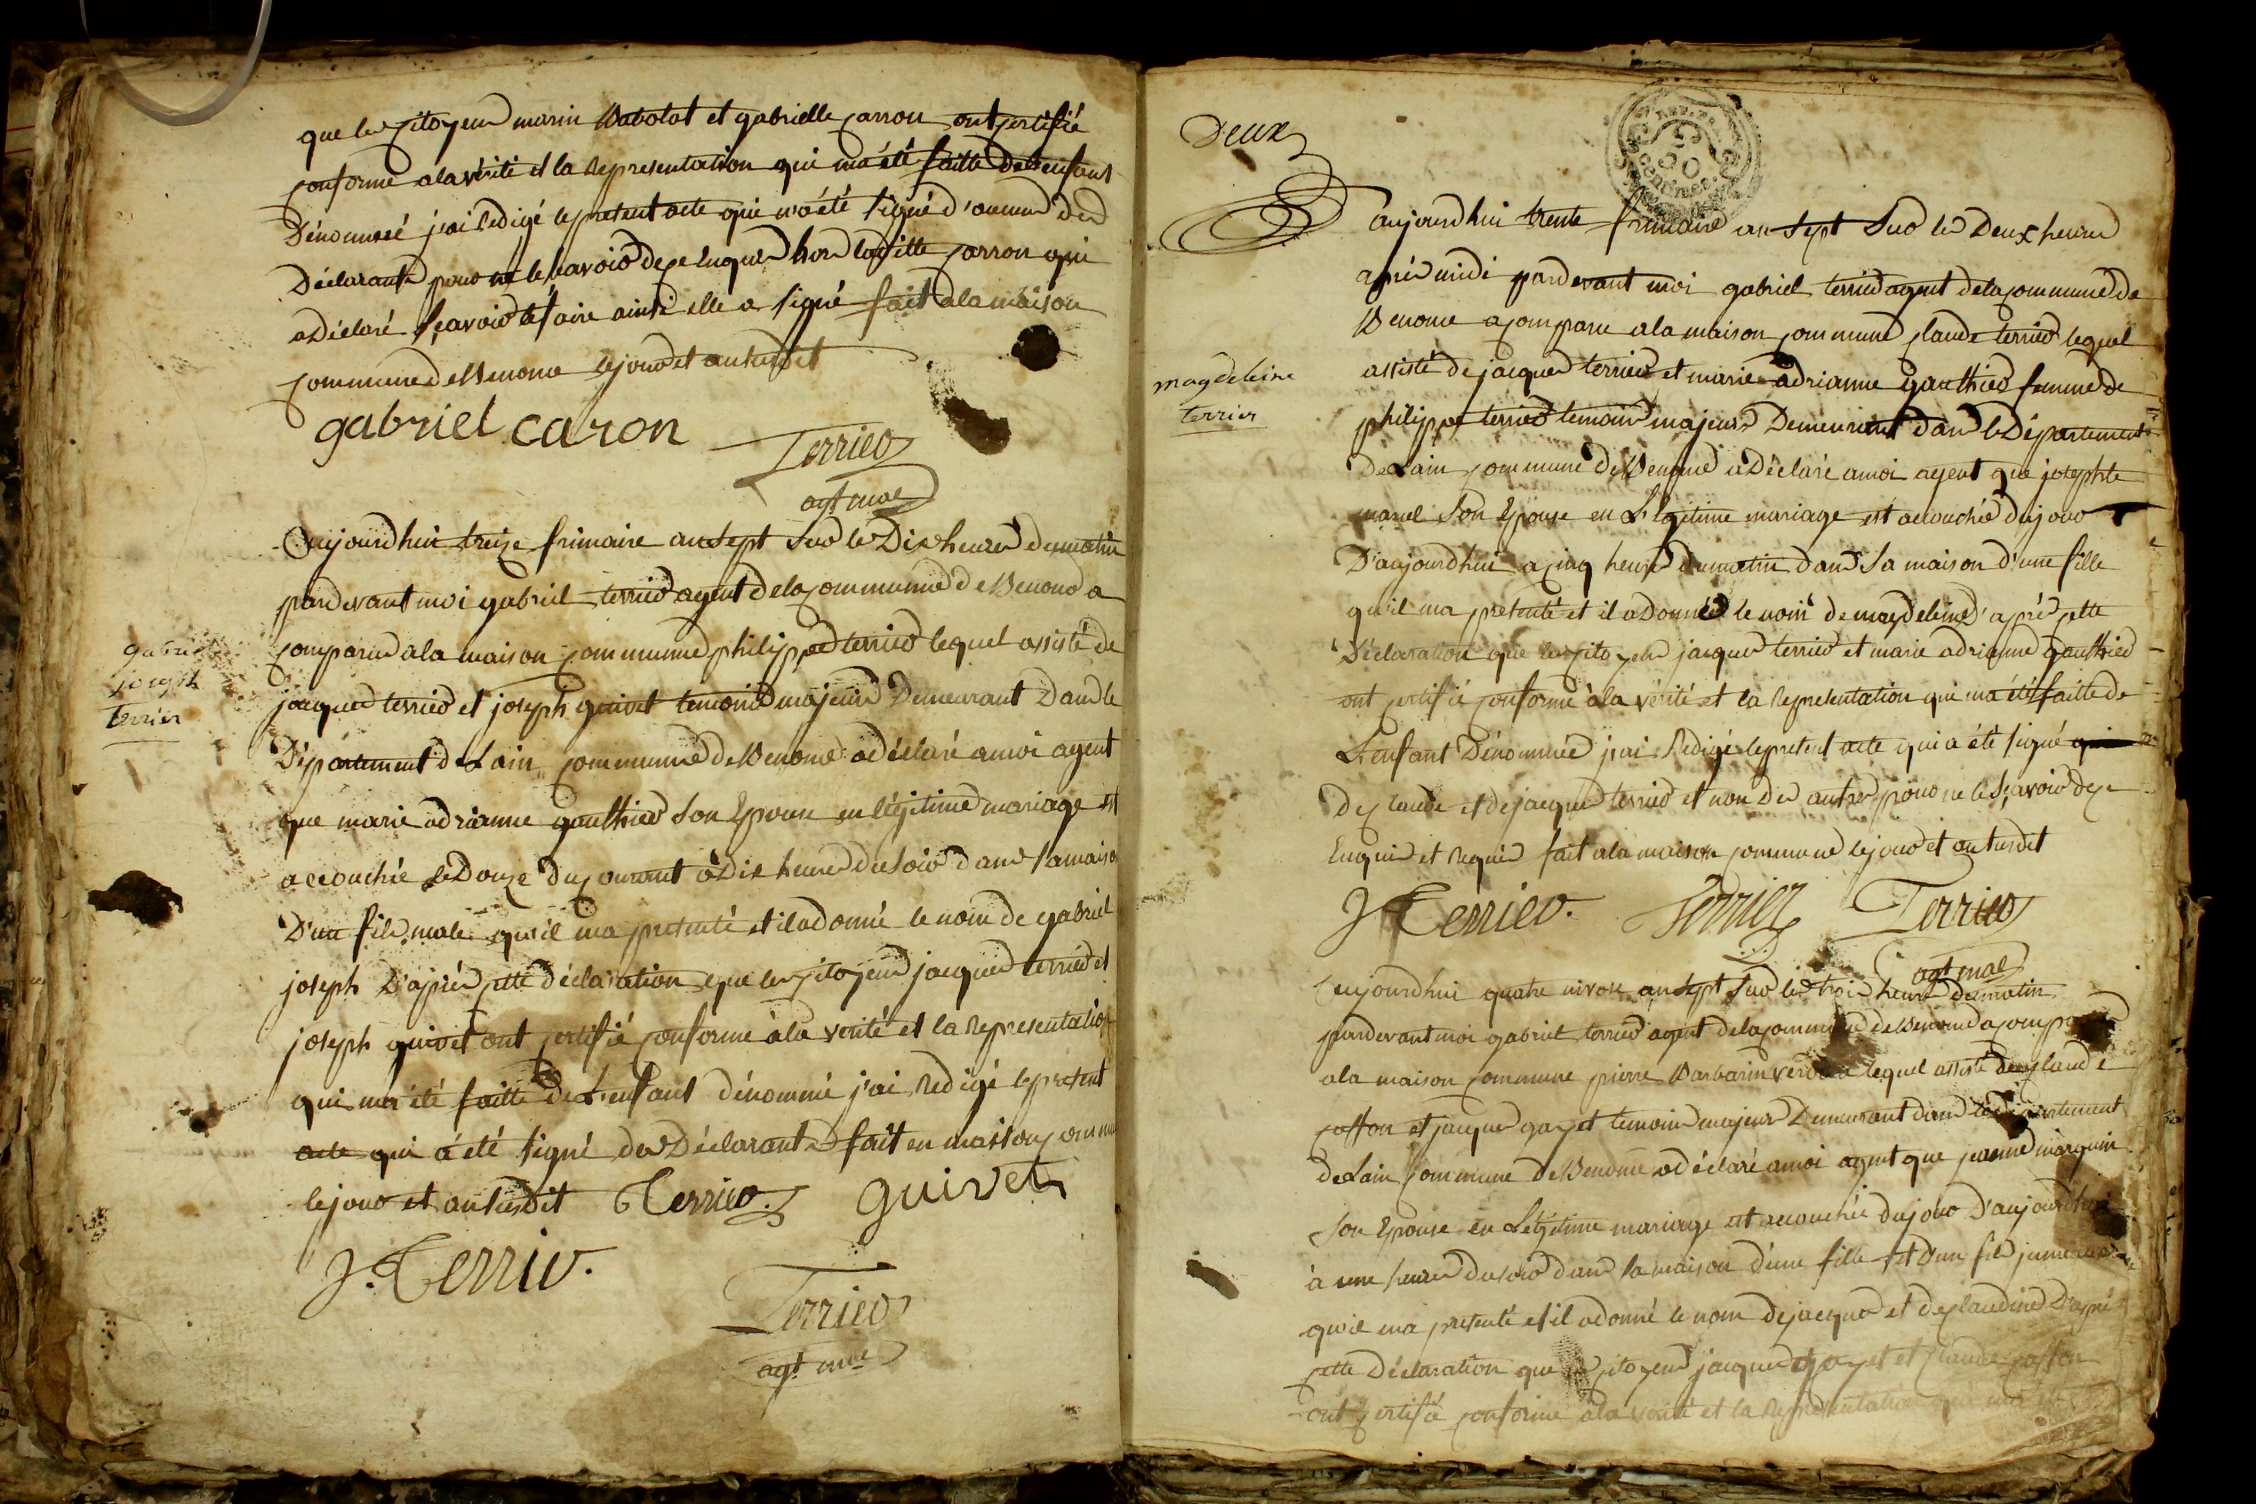 que les citoyens marin Vabolot et gabrielle carron ont certifié
conforme a la vérité et la representation qui ma été faitte de l'enfant
Dénommé j'ai Redigé le present acte qui n'a été signé d'aucun des
Déclarants pour ne le sçavoir de ce Enquis hors laditte carron qui
a Déclaré sçavoir le faire ainsi elle a signé fait a la maison
commune de Benome le jour et an susdit
gabriel caron
Terrier
agt mal
Aujourdhui treize frimaire an sept sur les Dix heures du matin
pardevant moi gabriel terrier agent de la commune de Benome a
comparu a la maison commune philippe terrier lequel assisté de
jacques terrier et joseph guivet temoins majeurs Demeurant Dans le
Département de Lain commune de Benome a déclaré a moi agent
que marie adrianne gauthier son Epouse en légitime mariage est
accouchée le Douze du courant à Dix heures du soir dans sa maison
D'un fils male qu'il ma presenté et il a donné le nom de gabriel
joseph D'après cette déclaration que les citoyens jacques terrier et
joseph guivet ont certifié conforme à la verité et la Representation
qui ma été faitte de L'enfant dénommé j'ai Redigé le present
acte qui a été signé des Déclarants fait en maison commune
le jour et an susdit Terrier guivet
J. Terrier.
Terrier
agt mal
gabriel
joseph
terrier
Deux
aujourdhui trente frimaire an sept sur les Deux heures
après midi pardevant moi gabriel terrier agent de la commune de
Benome a comparu a la maison commune claude terrier lequel
assisté de jacques terrier et marie adrianne gauthier femme de
philippe terrier temoins majeurs Demeurant dans le Département
de Lain commune de Benome a Déclaré a moi agent que josephte
manel Son Epouse en Légitime mariage est accouchée du jour
D'aujourdhui a cinq heures du matin dans sa maison d'une fille
qu'il ma presenté et il a Donnée le nom de magdeleine d'après cette
Déclaration que les citoyens jacques terrier et marie adrianne gauthier
ont certifié conforme à la vérité et la Representation qui ma été faitte de
L'enfant Dénommée j'ai Redigé le present acte qui a été signé
de claude et de jacques terrier et non des autres pour ne le sçavoir de ce
Enquis et Requis fait a la maison commune le jour et an susdit
J Terrier. Terrier Terrier
agt mal
magdeleine
terrier
aujourdhui quatre nivose an sept sur les trois heures du matin
pardevant moi gabriel terrier agent de la commune de Benome a comparu
a la maison commune pierre Barbarin lequel assisté de claude
coffon et jacques gayet temoins majeurs Demeurant dans le Département
de Lain commune de Benome a déclaré a moi agent que jeanne marguin
son Epouse en Légitime mariage est accouchée du jour D'aujourdhui
à une heure du soir dans sa maison d'une fille et d'un fils jumeaux
qu'il ma presenté et il a donné le nom de jacques et de claudine D'après
cette Déclaration que les citoyens jacques gayet et claude coffon
ont certifié conforme a la verité et la Representation qui ma été